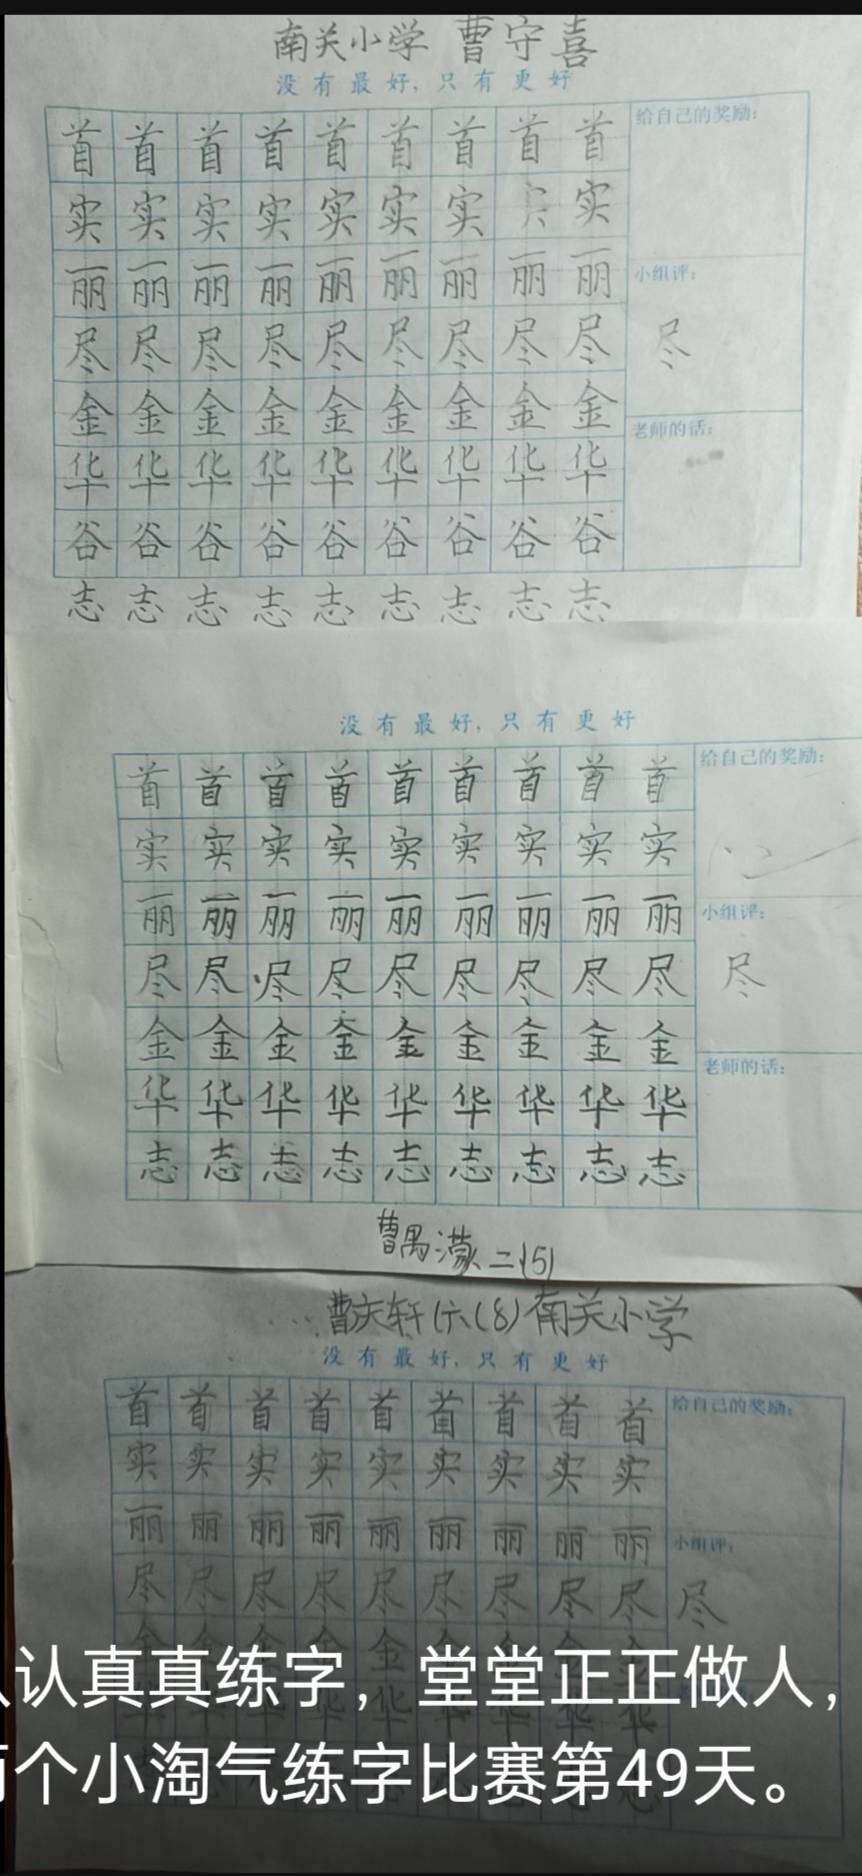 南关小学 曹守喜
没有最好,只有更好
首首首首首首首首首
给自己的奖励:
实实实实实实实实实
丽丽丽丽丽丽丽丽丽
小组评:
尽尽尽尽尽尽尽尽尽 尽
金金金金金金金金金
老师的话:
华华华华华华华华华
谷谷谷谷谷谷谷谷谷
志志志志志志志志志
没有最好,只有更好
首首首首首首首首首
给自己的奖励:
实实实实实实实实实
丽丽丽丽丽丽丽丽丽
小组评:
尽尽尽尽尽尽尽尽尽 尽
金金金金金金金金金
老师的话:
华华华华华华华华华
志志志志志志志志志
曹禺濛 二(5)
曹庆轩 六(8) 南关小学
没有最好,只有更好
首首首首首首首首首
给自己的奖励:
实实实实实实实实实
丽丽丽丽丽丽丽丽丽
小组评:
尽尽尽尽尽尽尽尽尽 尽
认真真练字,堂堂正正做人,
个小淘气练字比赛第49天。